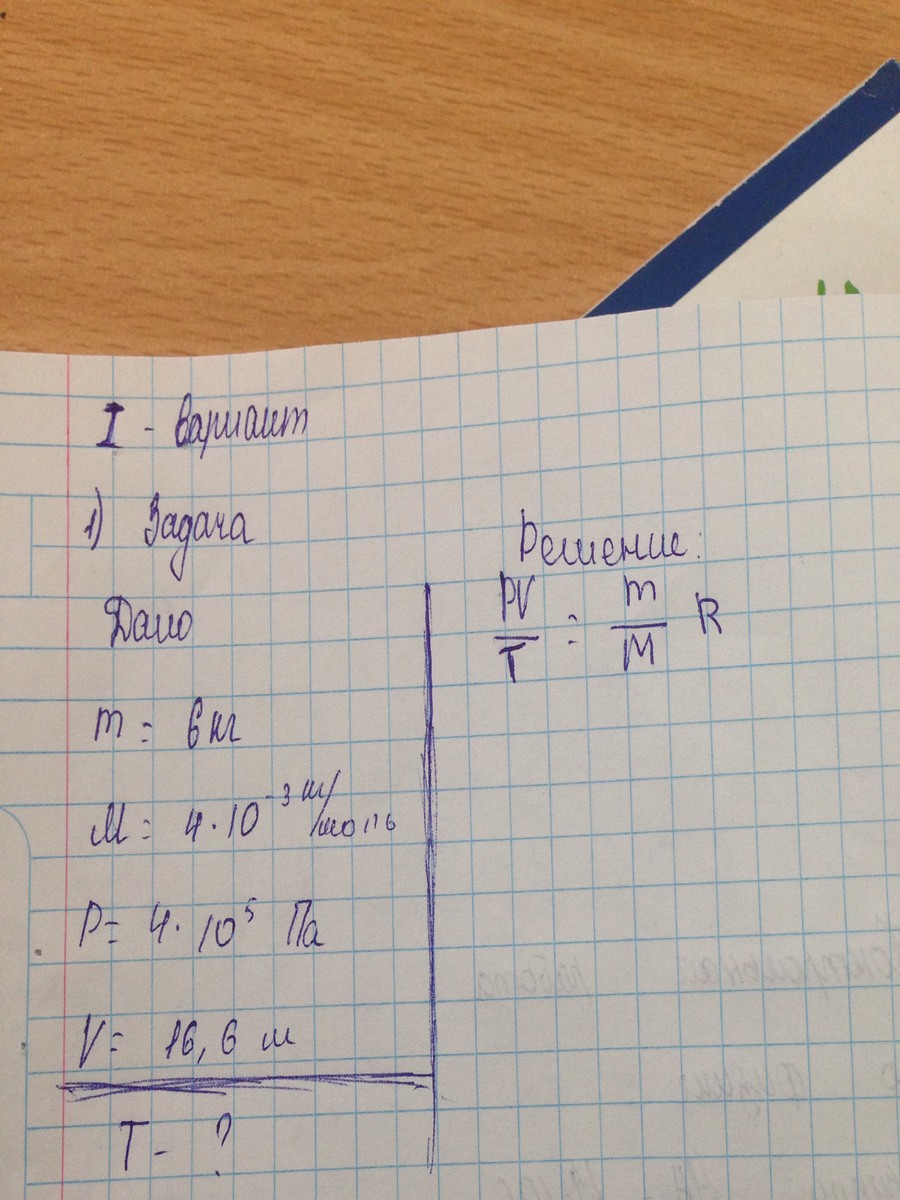 I - вариант
1) Задача
Дано
m = 6 кг
M = 4·10⁻³ м/моль
P = 4·10⁵ Па
V = 16,6 м
T - ?
Решение:
PV/T = m/M R